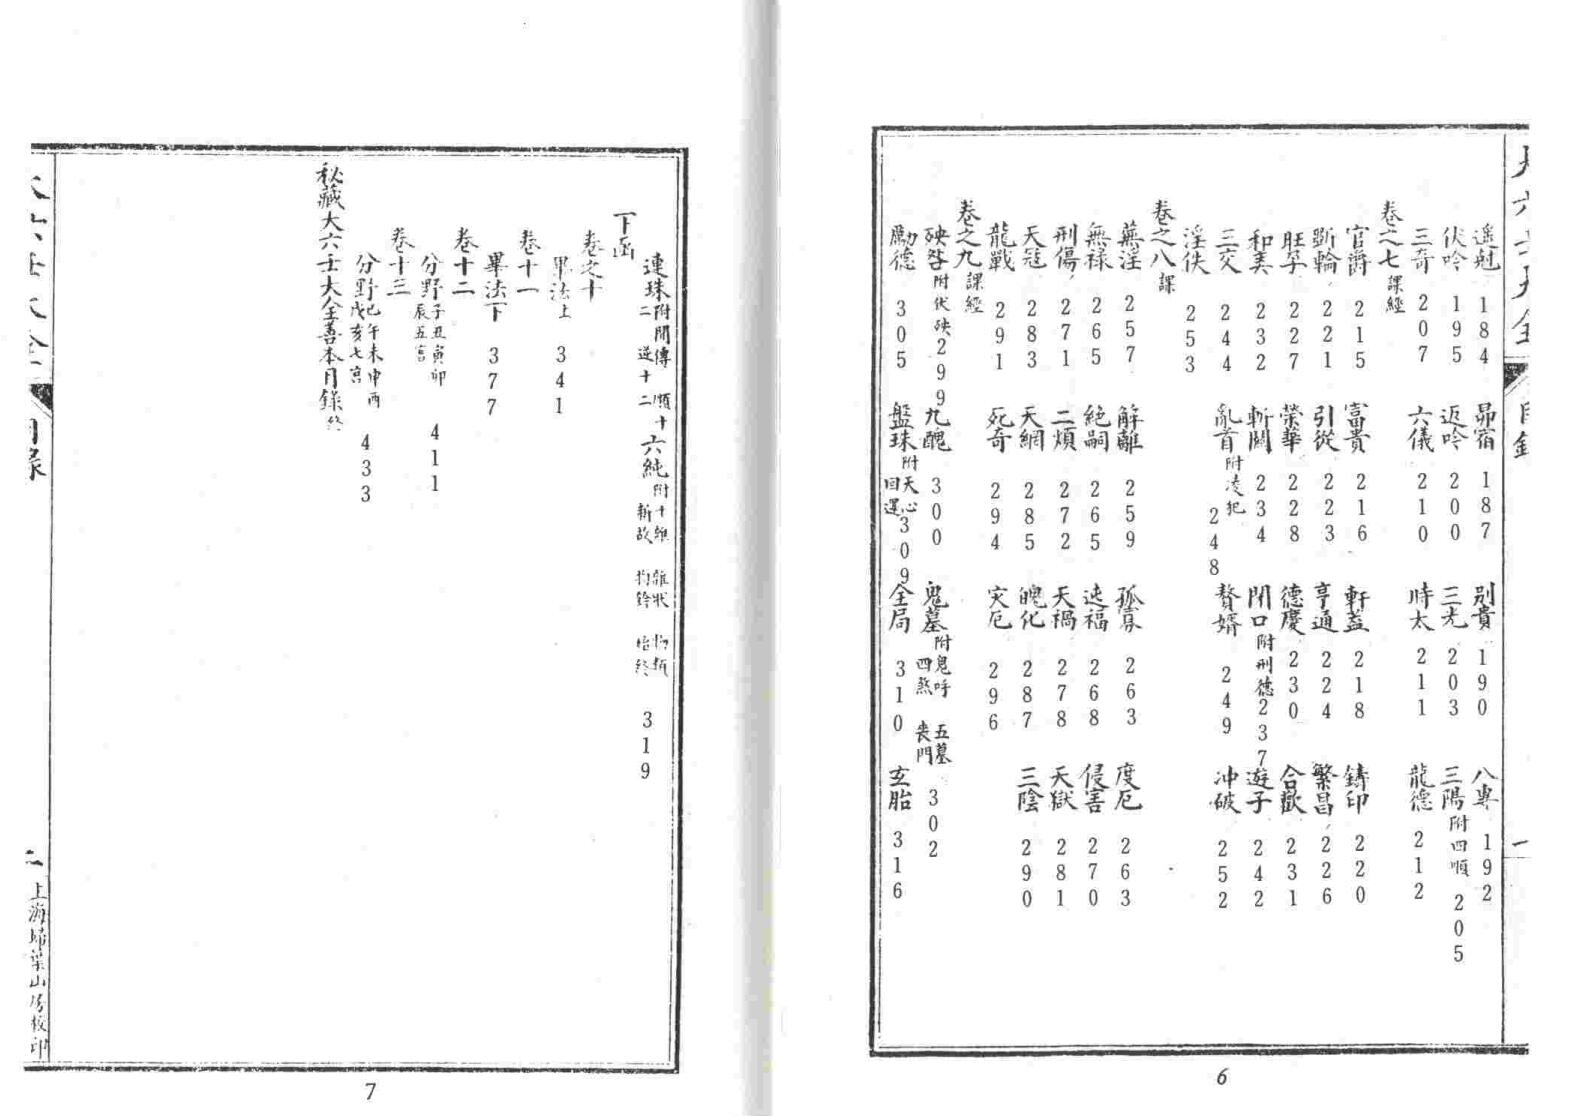 大六壬大全
目錄
一
遥尅 184 昴宿 187 别責 190 八專 192
伏吟 195 返吟 200 三光 203 三陽附四順 205
三奇 207 六儀 210 時太 211 龍德 212
卷之七課經
官爵 215 富貴 216 軒蓋 218 鑄印 220
斲輪 221 引從 223 亨通 224 繁昌 226
旺孕 227 榮華 228 德慶 230 合歡 231
和美 232 斬關 234 閉口附刑德 237 遊子 242
三交 244 亂首附凌犯 248 贅婿 249 冲破 252
淫泆 253
卷之八課
蕪淫 257 解離 259 孤寡 263 度厄 263
無祿 265 絶嗣 265 迍福 268 侵害 270
刑傷 271 二煩 272 天禍 278 天獄 281
天寇 283 天網 285 魄化 287 三陰 290
龍戰 291 死奇 294 灾厄 296
卷之九課經
殃咎附伏殃 299 九醜 300 鬼墓附鬼呼 四煞 五墓 喪門 302
勵德 305 盤珠附天心 回還 309 全局 310 玄胎 316
6
連珠附間傳 順十二 逆十二 六純附十雜 新故 雜狀 物類 始終 319
下函
卷之十
畢法上 341
卷十一
畢法下 377
卷十二
分野子丑寅卯辰五宫 411
卷十三
分野巳午未申酉戌亥七宫 433
秘藏大六壬大全善本目錄終
大六壬大全
目錄
二
上海歸葉山房校印
7